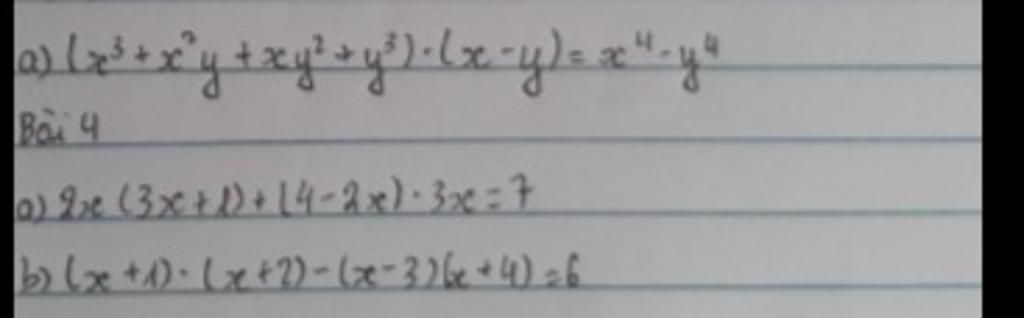 a) (x³ + x²y + xy² + y³) · (x - y) = x⁴ - y⁴
Bài 4
a) 2x (3x + 1) + (4 - 2x) · 3x = 7
b) (x + 1) · (x + 2) - (x - 3)(x + 4) = 6